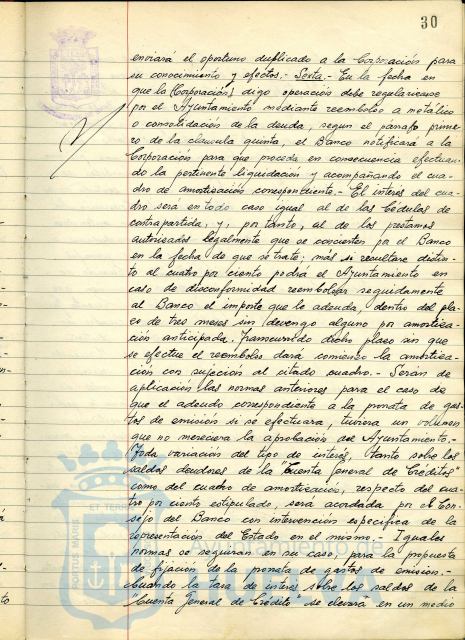 30
enviará el oportuno duplicado a la Corporación para
su conocimiento y efectos.- Sexta.- En la fecha en
que la (Corporación) digo operación debe regularizarse
por el Ayuntamiento mediante reembolso a metálico
o consolidación de la deuda, segun el parrafo prime
ro de la clausula quinta, el Banco notificará a la
Corporación para que proceda en consecuencia efectuan
do la pertinente liquidación y acompañando el cua-
dro de amortización correspondiente.- El interes del cua
dro será en todo caso igual al de las Cédulas de
contrapartida, y, por tanto, al de los préstamos
autorizados legalmente que se concierten por el Banco
en la fecha de que se trate; más si resultare distin-
to al cuatro por ciento podrá el Ayuntamiento en
caso de disconformidad reembolsar seguidamente
al Banco el importe que le adeuda, dentro del pla-
zo de tres meses sin devengo alguno por amortiza-
ción anticipada. Transcurrido dicho plazo sin que
se efectue el reembolso dará comienzo la amortiza-
ción con sujeción al citado cuadro.- Serán de
aplicación las normas anteriores para el caso de
que el adeudo correspondiente a la prorrata de gas-
tos de emisión si se efectuara, tuviera un volumen
que no mereciera la aprobación del Ayuntamiento.-
Toda variación del tipo de interés, tanto sobre los
saldos deudores de la "Cuenta General de Créditos"
como del cuadro de amortización, respecto del cua-
tro por ciento estipulado, será acordada por el Con-
sejo del Banco con intervención especifica de la
representación del Estado en el mismo.- Iguales
normas se seguiran en su caso, para la propuesta
de fijación de la prorrata de gastos de emisión.-
Cuando la tasa de interés sobre los saldos de la
"Cuenta General de Crédito" se elevara en un medio
PORTUS MARIS
ET TERRAE